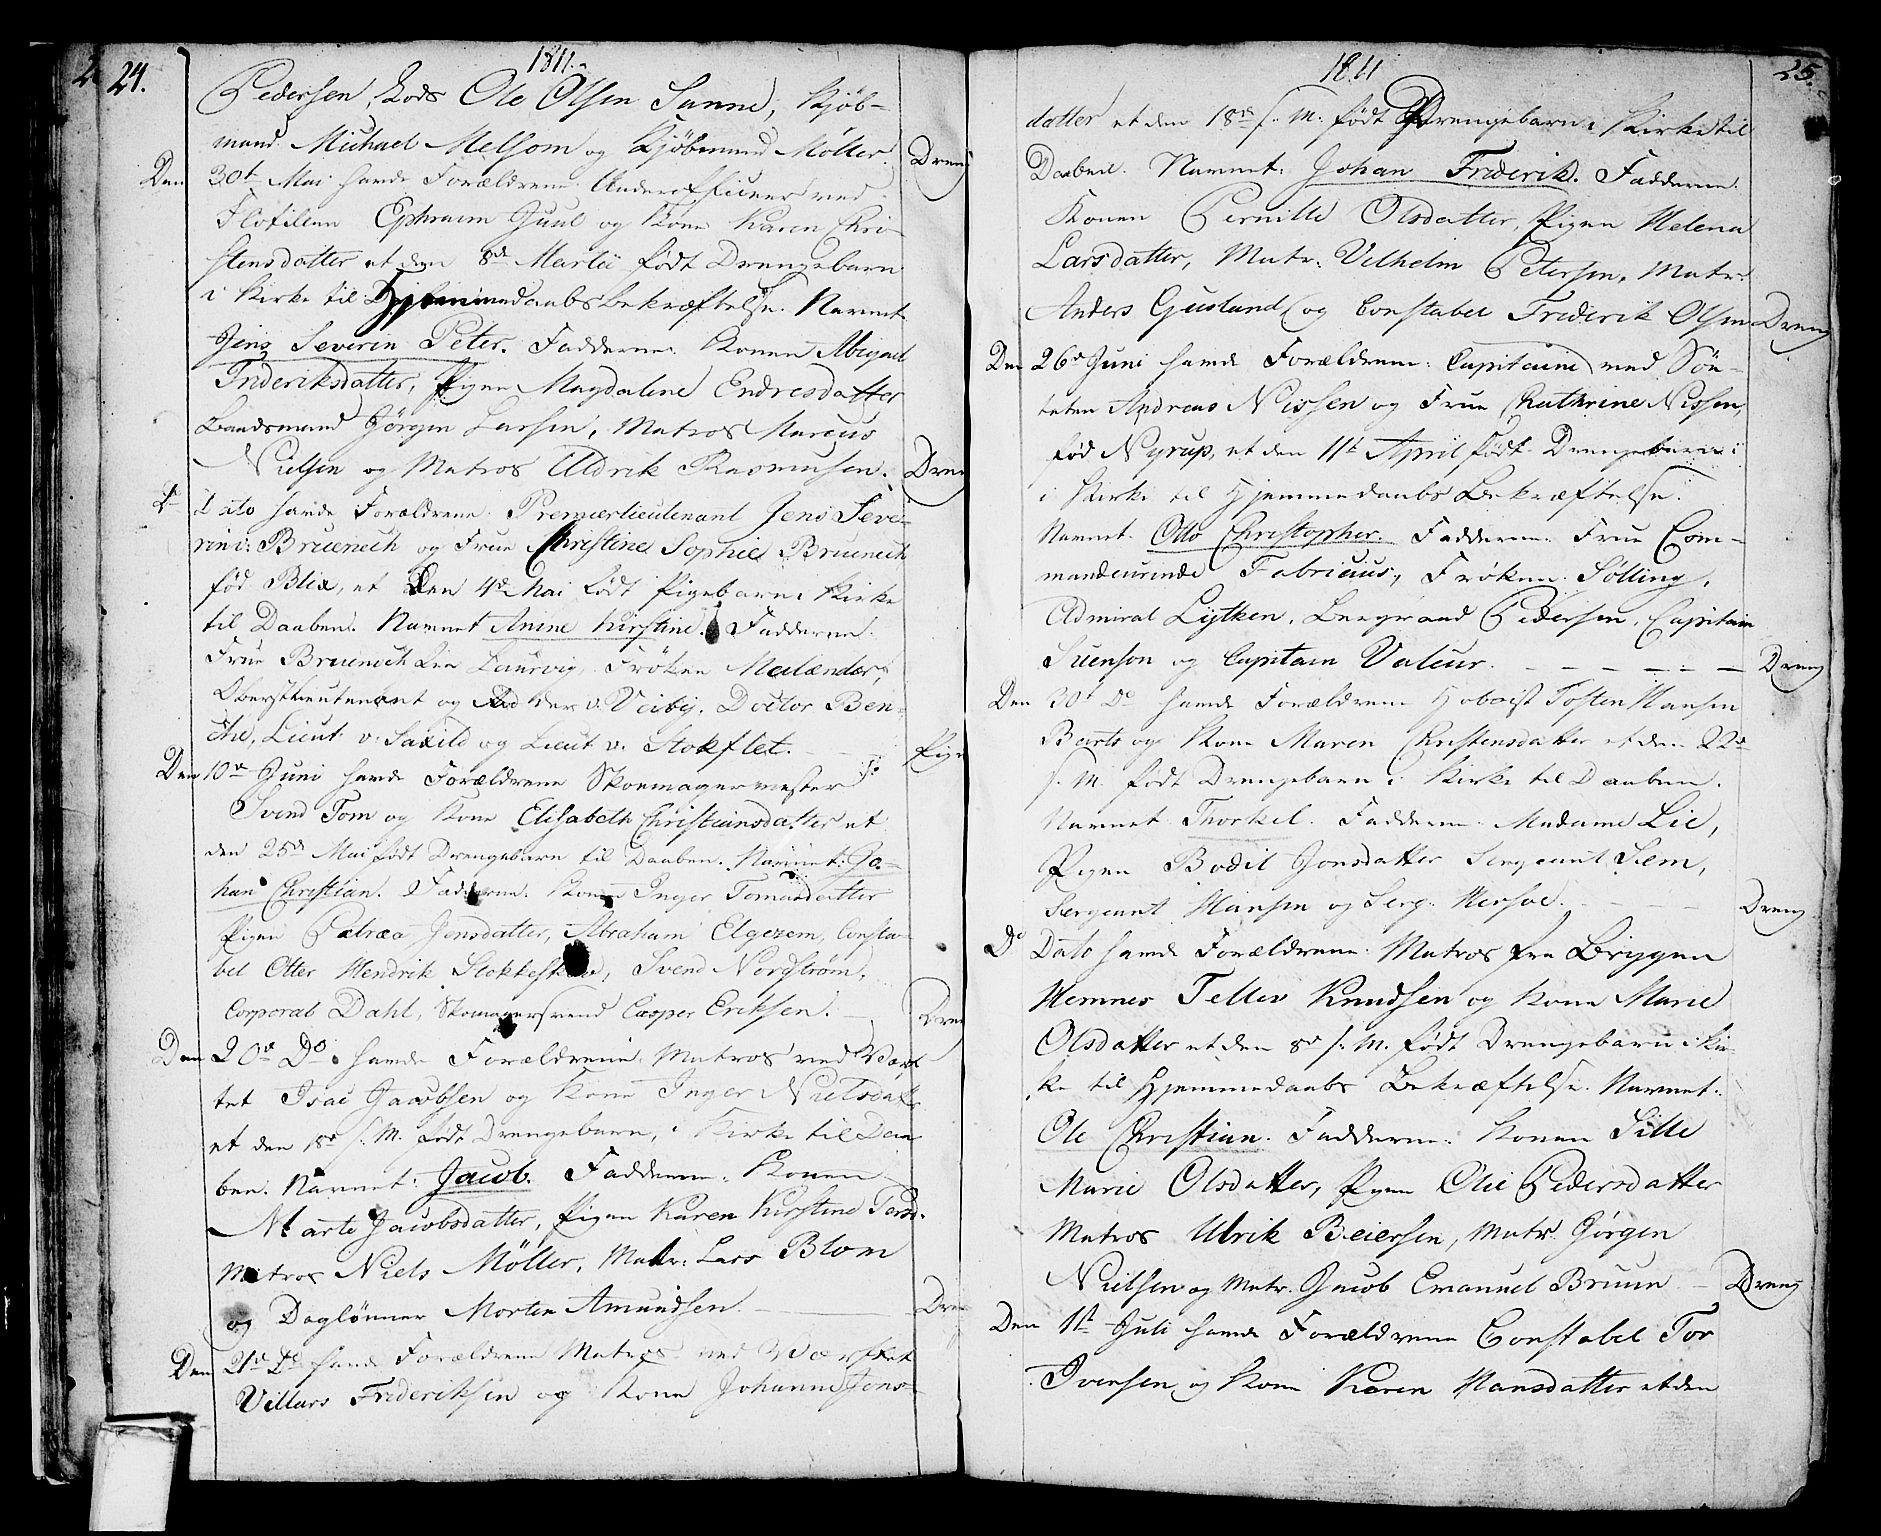 24.
1811.
Pedersen, Lods Ole Olsen Sanne, Kjöb-
mand Michael Melsom og Kjöbmand Möller. Dreng
Den 30t Mai havde Forældrene Underofficeer ved
Flotillen Ephraim Juul og Kone Karen Chri-
stensdatter et den 8de Martii födt Drengebarn
i Kirke til Hjemmedaabs Bekræftelse. Navnet
Jens Severin Peter. Fadderne: Konen Abigael
Frideriksdatter, Pigen Magdalene Endresdatter
Baadsmand Jörgen Larsen, Matros Marcus
Nielsen og Matros Uldrik Rasmusen. Dreng
D Dito havde Forældrene Premierlieutenant Jens Seve-
rin Bruenech og Frue Christine Sophie Bruenech
föd Blix, et den 4de Mai födt Pigebarn i Kirke
til Daaben. Navnet Anine Kirstine. Fadderne:
Frue Bruenech Laurvig, Fröken Meilænder,
Oberstlieutenant og v. Veiby, Doctor Ben-
the, Lieut v. Saxild og Lieut v. Stokflet. Pige
Den 10de Juni havde Forældrene Skomagermester
Svend Tom og Kone Elisabeth Christiansdatter et
den 25de Mai födt Drengebarn til Daaben. Navnet: Jo-
han Christian. Fadderne. Konen Inger Tomasdatter
Pigen Petræa Jensdatter, Abraham Elgezem, Consta-
bel Otter Hendrik, Svend Nordström,
Corporal Dahl, Skomagersvend Casper Eriksen. Dreng
Den 20de Do havde Forældrene Matros ved Værf-
tet Isac Jacobsen og Kone Inger Nielsdatter
et den 18de s. M. födt Drengebarn, i Kirke til Daa-
ben. Navnet: Jacob. Fadderne: Konen
Marte Jacobsdatter, Pigen Karen Kirstine Torsd.
Matros Niels Möller, Matr: Lars Blom
og Daglönner Morten Amundsen. Dreng
Den 21de Do havde Forældrene Matros ved Værftet
Villars Frideriksen og Kone Johanne Jons-
1811
25.
datter et den 18de s. M. födt Drengebarn i Kirke til
Daaben. Navnet: Johan Friderik. Fadderne:
Konen Pernille Olsdatter, Pigen Helena
Larsdatter, Matr: Vilhelm Petersen, Matr:
Anders Guslund og Constabel Friderik Olsen Dreng
Den 26de Juni havde Forældrene: Capitaine ved Söe-
teten Andreas Nissen og Frue Chathrine Nissen,
föd Nyrup, et den 11te April födt Drengebarn i
i Kirke til Hjemmedaabs Bekræftelse.
Navnet Otto Christopher. Fadderne: Frue Com-
mandeurinde Fabricius, Fröken Sölling,
Admiral Lytken, Bergraad Pedersen, Capitain
Suenson og Capitain Valeur. Dreng
Den 30t Do havde Forældrene Hoboist Tosten Hansen
Barts og Kone Maren Christensdatter et den 22de
s. M. födt Drengebarn i Kirke til Daaben.
Navnet Thorkel. Fadderne: Madame Lie,
Pigen Bodil Jonsdatter Sergeant Sem,
Sergeant Hansen og Serg. Hersoe. Dreng
Do Dato havde Forældrene: Matros fra Briggen
Hemnes Tellev Knudsen og Kone Marie
Olsdatter et den 8de s. M. födt Drengebarn i Kir-
ke til Hjemmedaabs Bekræftelse. Navnet:
Ole Christian. Fadderne: Konen Sille
Marie Olsdatter, Pigen Olie Pedersdatter
Matros Ulrik Beiersen, Matr. Jörgen
Nielsen og Matr. Jacob Emanuel Bruun Dreng
Den 1st Juli havde Forældrene Constabel Tor
Iversen og Kone Karen Hansdatter et den